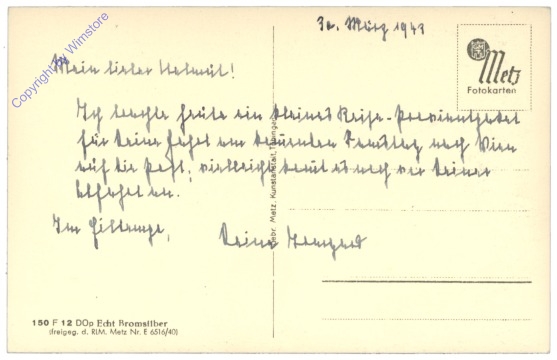 30. März 1943
Metz
Fotokarten
Mein lieber Helmut!
Ich brachte heute ein kleines Reise-Proviantpaket
für Deine Fahrt am kommenden Samstag nach Wien
auf die Post, vielleicht kommt es noch vor Deiner
Abfahrt an.
Im Eiltempo,
Deine Irmgard
Gebr. Metz, Kunstanstalt, Tübingen
150 F 12 DOp Echt Bromsilber
(freigeg. d. RLM. Metz Nr. E 6516/40)
Copyright by Wimstore